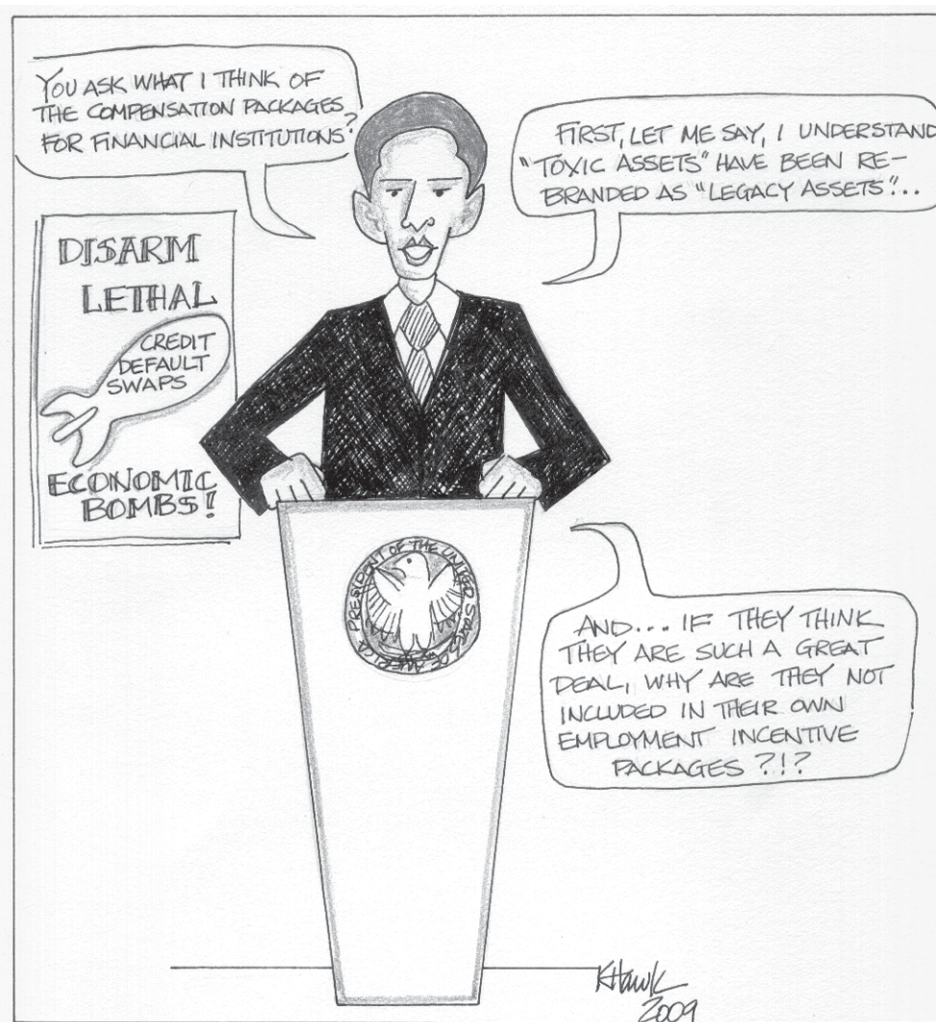 YOU ASK WHAT I THINK OF
THE COMPENSATION PACKAGES
FOR FINANCIAL INSTITUTIONS?
FIRST, LET ME SAY, I UNDERSTAND
"TOXIC ASSETS" HAVE BEEN RE-
BRANDED AS "LEGACY ASSETS"...
DISARM
LETHAL
CREDIT
DEFAULT
SWAPS
ECONOMIC
BOMBS!
PRESIDENT OF THE UNITED STATES OF AMERICA
AND... IF THEY THINK
THEY ARE SUCH A GREAT
DEAL, WHY ARE THEY NOT
INCLUDED IN THEIR OWN
EMPLOYMENT INCENTIVE
PACKAGES ?!?
KHawk
2009